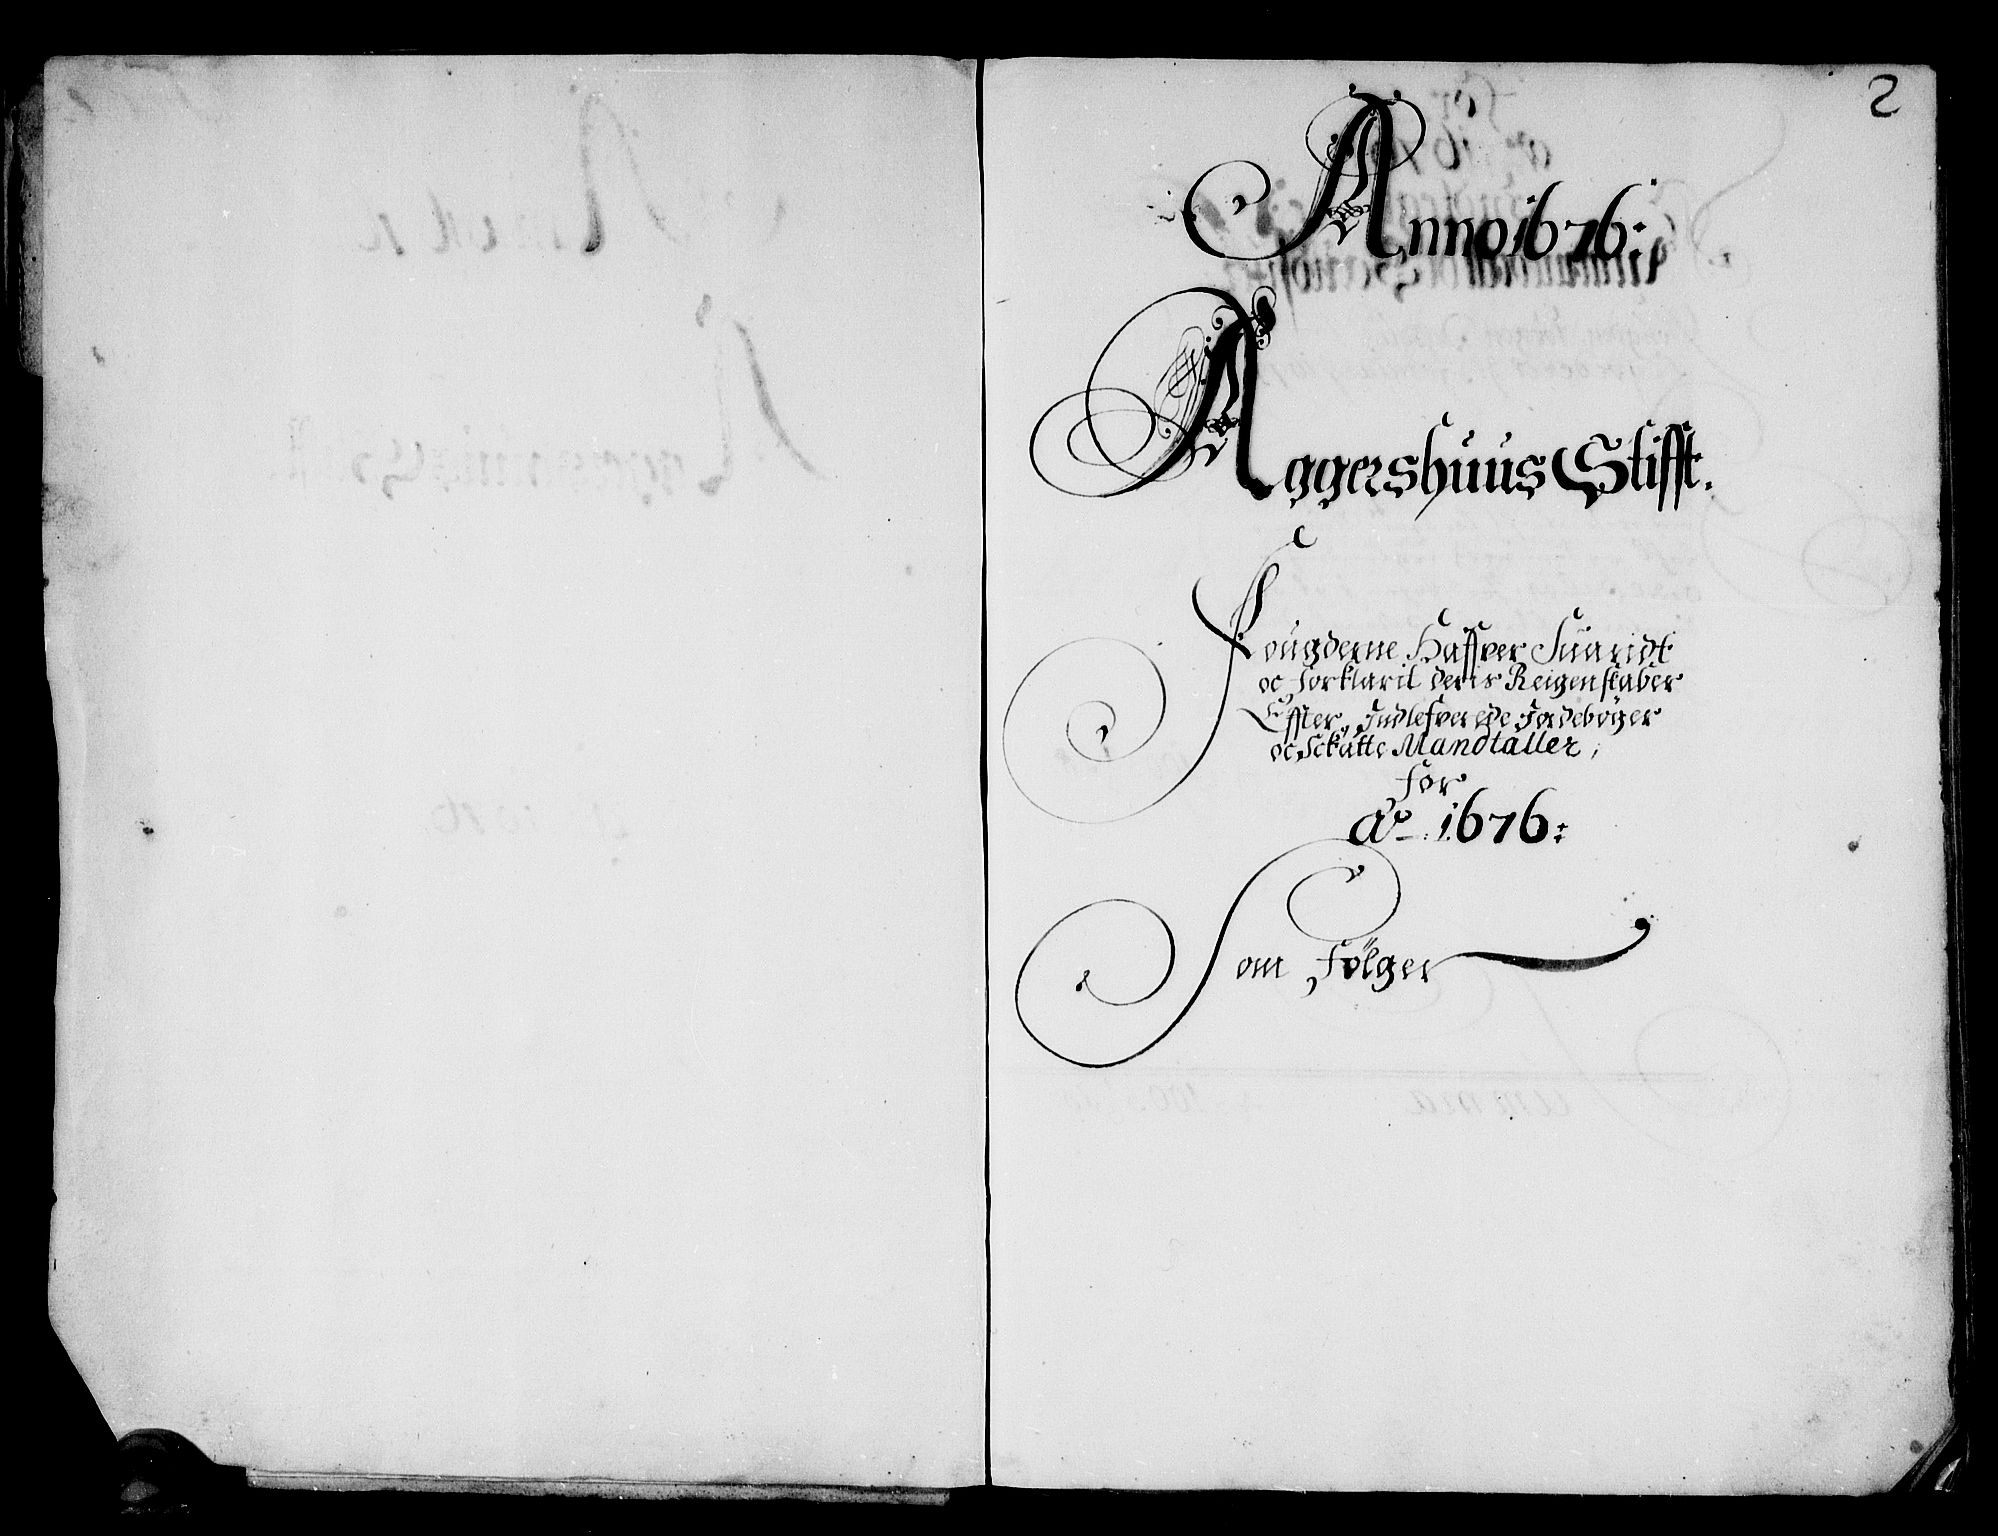 2
Anno 1676:
Aggershuus Stifft.
Fougderne Haffver Suaridt
oc forklarit deris Reigenskaber
Effter, Indlefverede Jordebøger
oc Sckatte Mandtaller,
for
Ao 1676:
Som følger